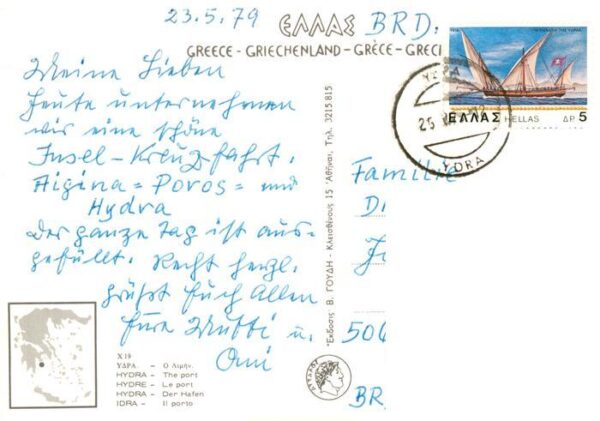 23.5.79
ΕΛΛΑΣ
BRD.
GREECE - GRIECHENLAND - GRÈCE - GRECI
Meine Lieben
Heute unternehmen
wir eine schöne
Insel-Kreuzfahrt.
Aigina = Poros = und
Hydra
Der ganze Tag ist aus-
gefüllt. Recht herzl.
grüßt Euch Allen
Eure Mutti u.
Omi
Χ 19
ΥΔΡΑ. - Ο Λιμήν.
HYDRA - The port
HYDRE - Le port
HYDRA - Der Hafen
IDRA - Il porto
Ἔκδοσις Β. ΓΟΥΔΗ - Κλεισθένους 15 Ἀθῆναι, Τηλ. 3215 815
ΕΛΛΑΣ HELLAS ΔΡ 5
YDRA
Familie
D
J
506
BR